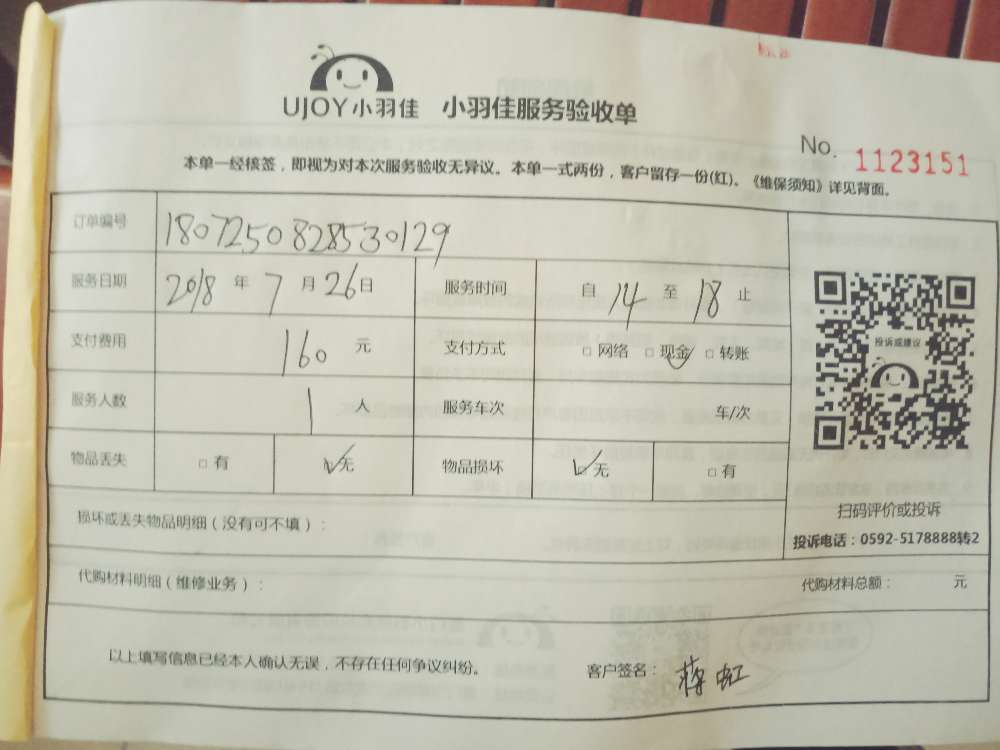 UJOY小羽佳 小羽佳服务验收单
No. 1123151
本单一经核签，即视为对本次服务验收无异议。本单一式两份，客户留存一份(红)。《维保须知》详见背面。
订单编号 1807250828530129
服务日期 2018 年 7 月 26 日 服务时间 自 14 至 18 止
支付费用 160 元 支付方式 □ 网络 □ 现金 ✓ □ 转账
服务人数 1 人 服务车次 车/次
物品丢失 □ 有 ☑ 无 物品损坏 ☑ 无 □ 有
投诉或建议
扫码评价或投诉
投诉电话：0592-5178888转2
损坏或丢失物品明细（没有可不填）：
代购材料明细（维修业务）： 代购材料总额： 元
以上填写信息已经本人确认无误，不存在任何争议纠纷。 客户签名： 蒋虹